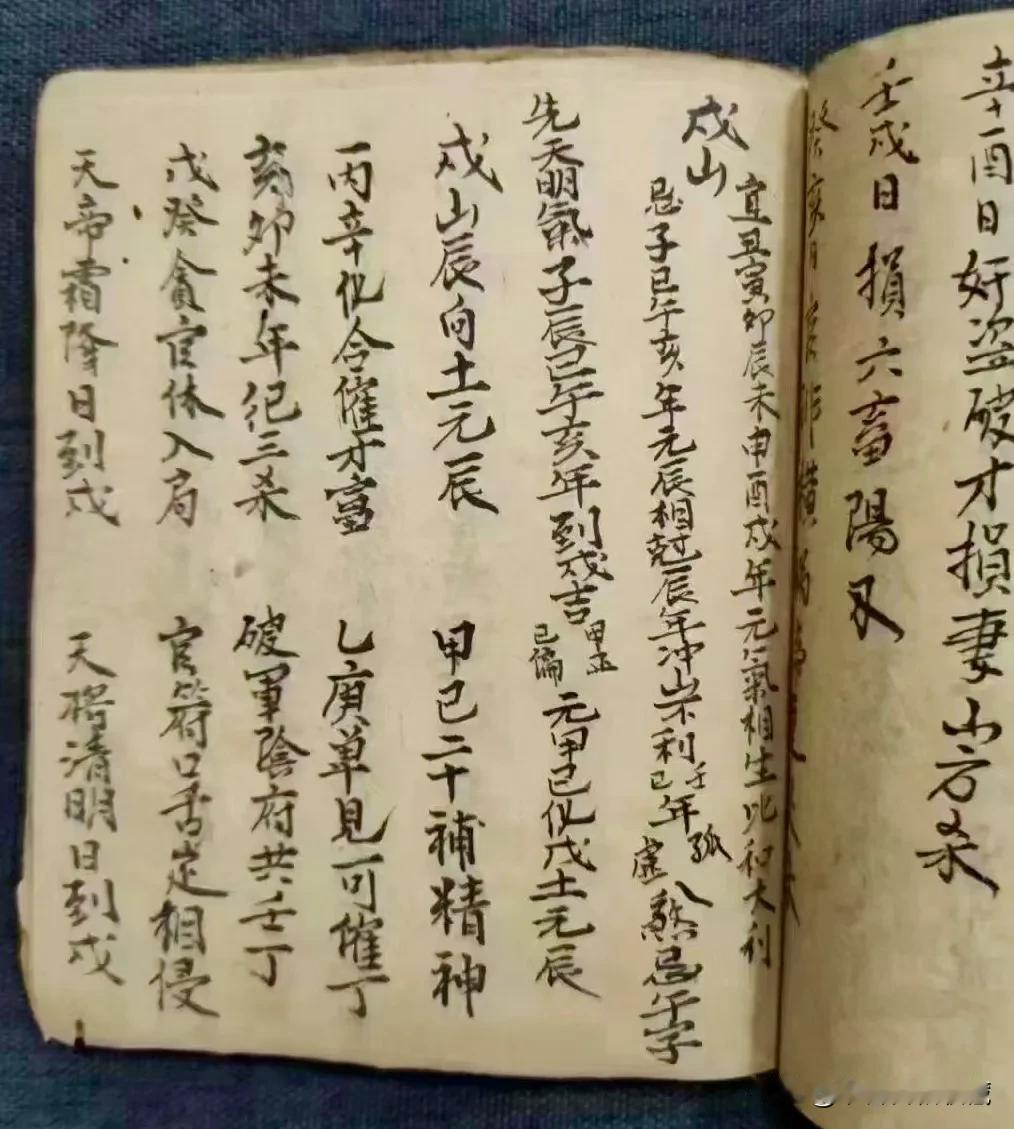 辛酉日奸盗破才損妻小方杀
壬戌日損六畜陽刄
癸亥月
戌山
宜丑寅卯辰未申酉戌年元氣相生比和大利
忌子巳午亥年元辰相尅辰年冲山不利壬巳年孤虚八煞忌午字
先天明氣子辰巳午亥年到戌吉甲正己偏元甲己化戊土元辰
戌山辰向土元辰 甲己二干補精神
丙辛化令催才富 乙庚单見可催丁
亥卯未年犯三杀 破軍陰府共壬丁
戊癸貪官休入局 官符口舌定相侵
天帝霜降日到戌 天将清明日到戌